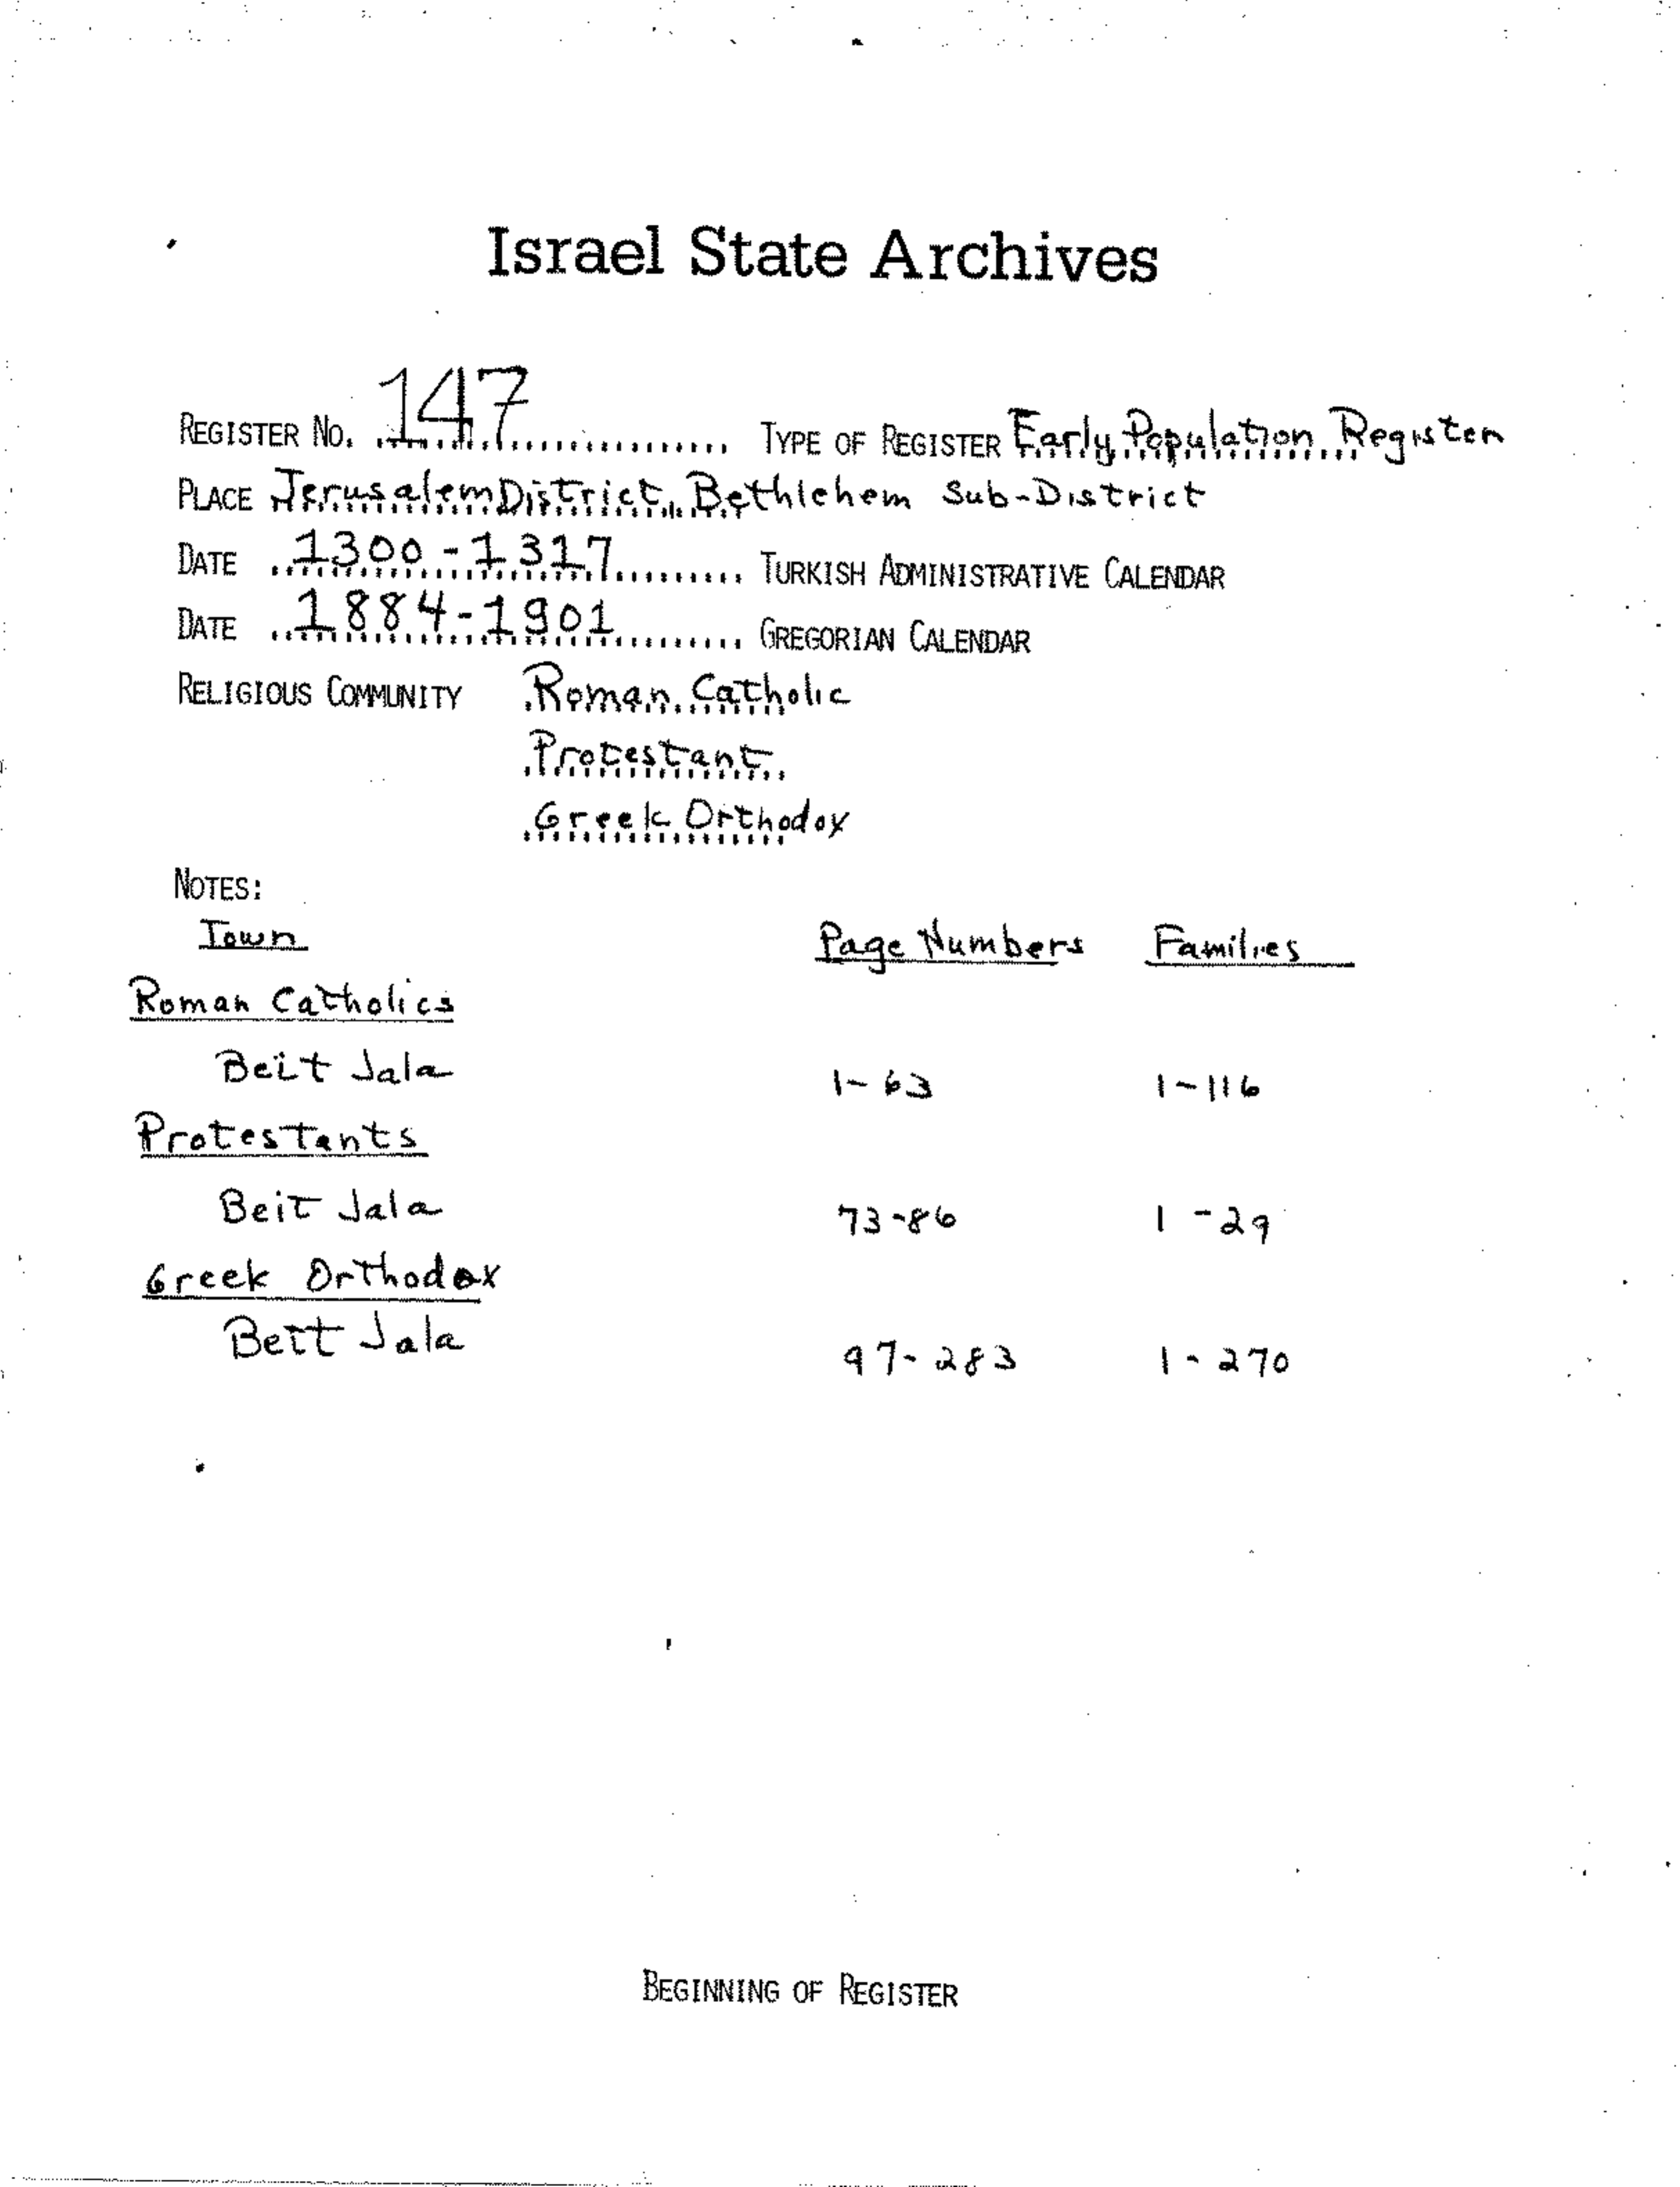 Israel State Archives
REGISTER NO. 147 TYPE OF REGISTER Early Population Register
PLACE Jerusalem District, Bethlehem Sub-District
DATE 1300-1317 TURKISH ADMINISTRATIVE CALENDAR
DATE 1884-1901 GREGORIAN CALENDAR
RELIGIOUS COMMUNITY Roman Catholic
Protestant
Greek Orthodox
NOTES:
Town Page Numbers Families
Roman Catholics
Beit Jala 1-63 1-116
Protestants
Beit Jala 73-86 1-29
Greek Orthodox
Beit Jala 97-283 1-270
BEGINNING OF REGISTER